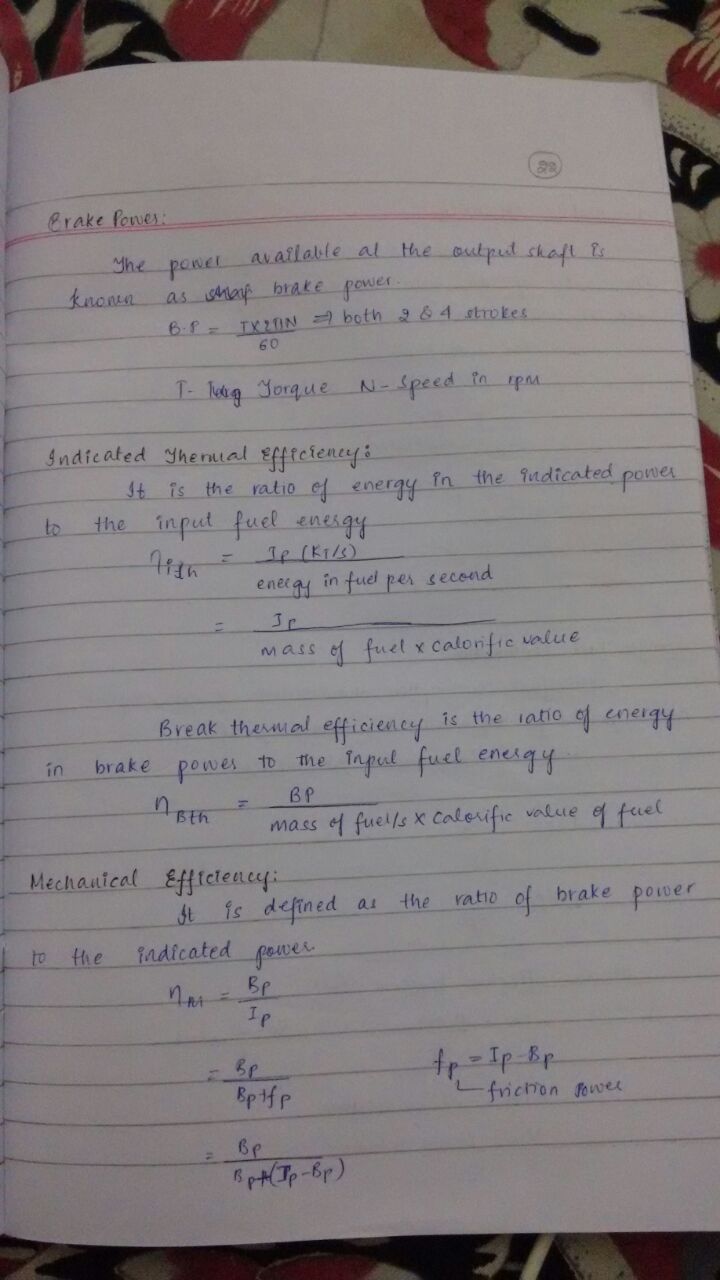 22
Brake Power:
The power available at the output shaft is
known as brake power.
B.P = T×2ΠN/60 ⇒ both 2 & 4 strokes
T- Torque N- Speed in rpm
Indicated Thermal Efficiency:
It is the ratio of energy in the indicated power
to the input fuel energy
ηith = Ip (KJ/s)/energy in fuel per second
= Ip/mass of fuel x calorific value
Break thermal efficiency is the ratio of energy
in brake power to the input fuel energy.
ηBth = BP/mass of fuel/s x calorific value of fuel
Mechanical Efficiency:
It is defined as the ratio of brake power
to the indicated power
ηM = Bp/Ip
= Bp/Bp+fp fp = Ip-Bp
friction power
= Bp/Bp+(Ip-Bp)